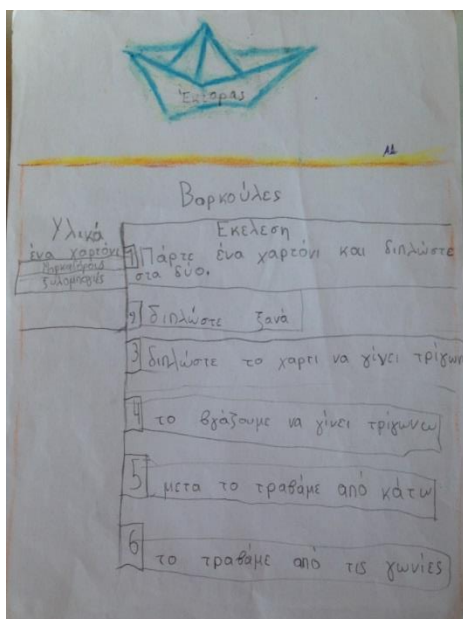 Έκτορας
Βαρκούλες
Υλικά
ένα χαρτόνι
μαρκαδόρους
ξυλομπογιές
Εκελεση
1 Πάρτε ένα χαρτόνι και διπλώστε
στα δύο.
2 διπλώστε ξανά
3 διπλώστε το χαρτι να γίνει τρίγων
4 το βγάζουμε να γίνει τρίγωνω
5 μετα το τραβάμε από κάτω
6 το τραβάμε από τις γωνίες